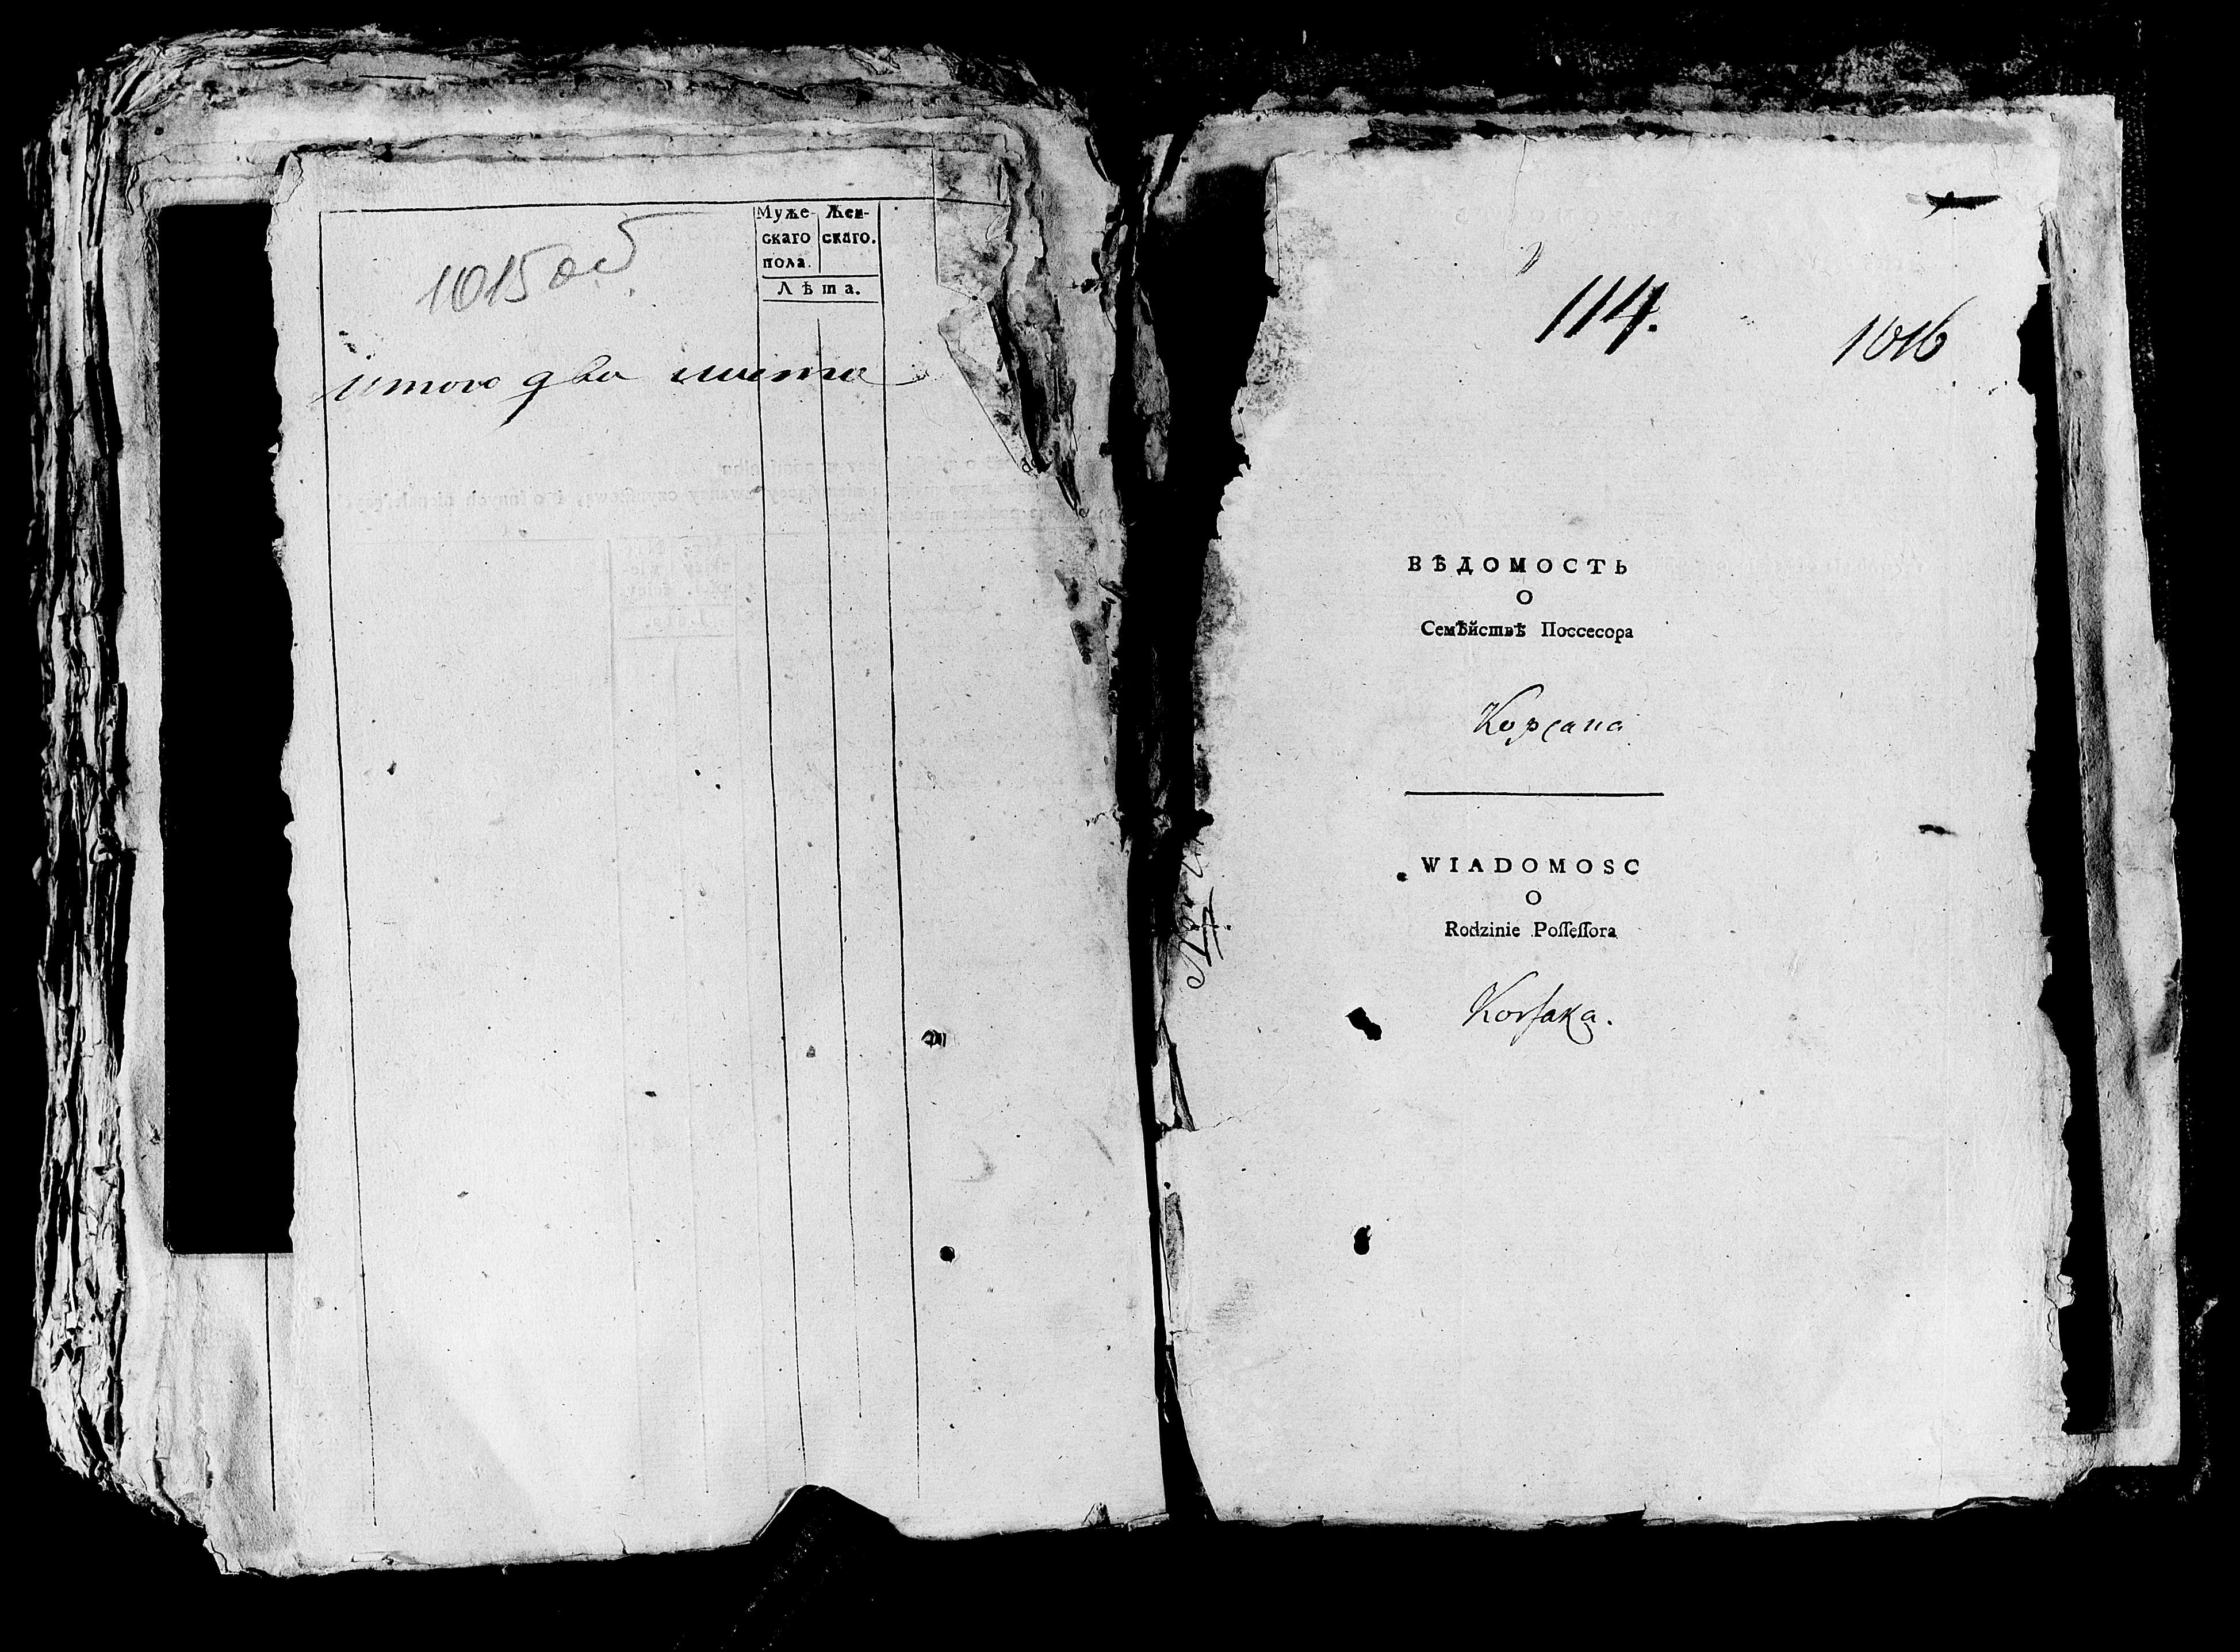 1015 об
Муже- Жен-
скаго скаго.
пола.
Лѣта.
итого два листа
114.
1016
ВѢДОМОСТЬ
О
Семѣйствѣ Поссесора
Корсака
WIADOMOSC
O
Rodzinie Poſſeſſora
Korſaka.